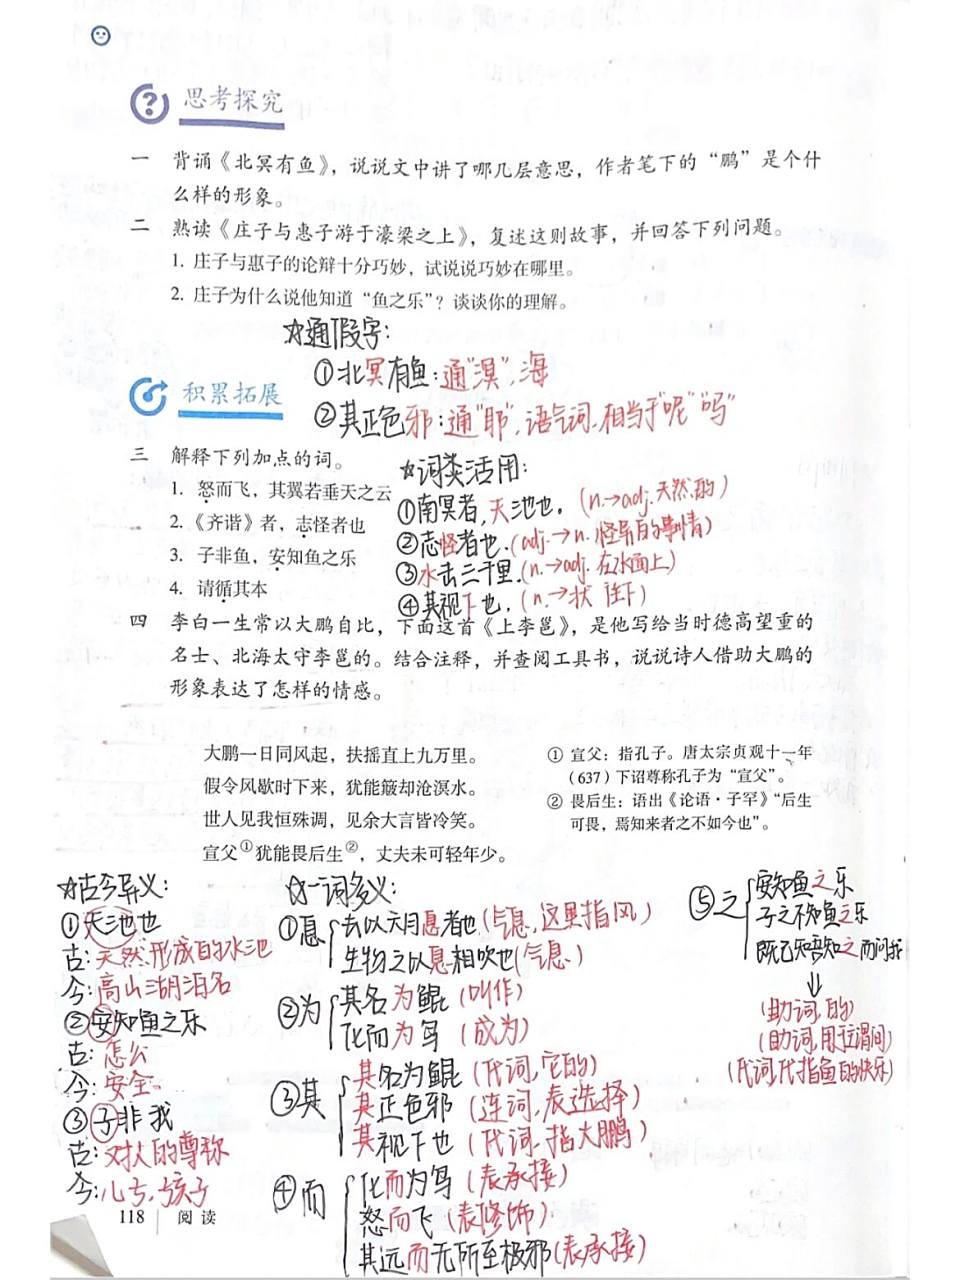 思考探究
一 背诵《北冥有鱼》，说说文中讲了哪几层意思，作者笔下的“鹏”是个什
么样的形象。
二 熟读《庄子与惠子游于濠梁之上》，复述这则故事，并回答下列问题。
1. 庄子与惠子的论辩十分巧妙，试说说巧妙在哪里。
2. 庄子为什么说他知道“鱼之乐”？谈谈你的理解。
☆通假字：
①北冥有鱼：通“溟”，海
②其正色邪：通“耶”，语气词，相当于“呢”“吗”
积累拓展
三 解释下列加点的词。
1. 怒而飞，其翼若垂天之云
2.《齐谐》者，志怪者也
3. 子非鱼，安知鱼之乐
4. 请循其本
☆词类活用：
①南冥者，天池也。(n.→adj.天然的)
②志怪者也.(adj.→n.怪异的事情)
③水击三千里.(n.→adj.在水面上)
④其视下也.(n.→状 往下)
四 李白一生常以大鹏自比，下面这首《上李邕》，是他写给当时德高望重的
名士、北海太守李邕的。结合注释，并查阅工具书，说说诗人借助大鹏的
形象表达了怎样的情感。
大鹏一日同风起，扶摇直上九万里。
假令风歇时下来，犹能簸却沧溟水。
世人见我恒殊调，见余大言皆冷笑。
宣父①犹能畏后生②，丈夫未可轻年少。
① 宣父：指孔子。唐太宗贞观十一年
（637）下诏尊称孔子为“宣父”。
② 畏后生：语出《论语·子罕》“后生
可畏，焉知来者之不如今也”。
☆古今异义：
①天池也
古：天然形成的水池
今：高山湖泊名
②安知鱼之乐
古：怎么
今：安全
③子非我
古：对人的尊称
今：儿子，孩子
☆一词多义：
①息
去以六月息者也(气息，这里指风)
生物之以息相吹也(气息)
②为
其名为鲲(叫作)
化而为鸟(成为)
③其
其名为鲲(代词，它的)
其正色邪(连词，表选择)
其视下也(代词，指大鹏)
④而
化而为鸟(表承接)
怒而飞(表修饰)
其远而无所至极邪(表承接)
⑤之
安知鱼之乐
子不知鱼之乐
既已知吾知之而问我
(助词，的)
(助词，用于主谓间)
(代词，代指鱼的快乐)
118 阅读